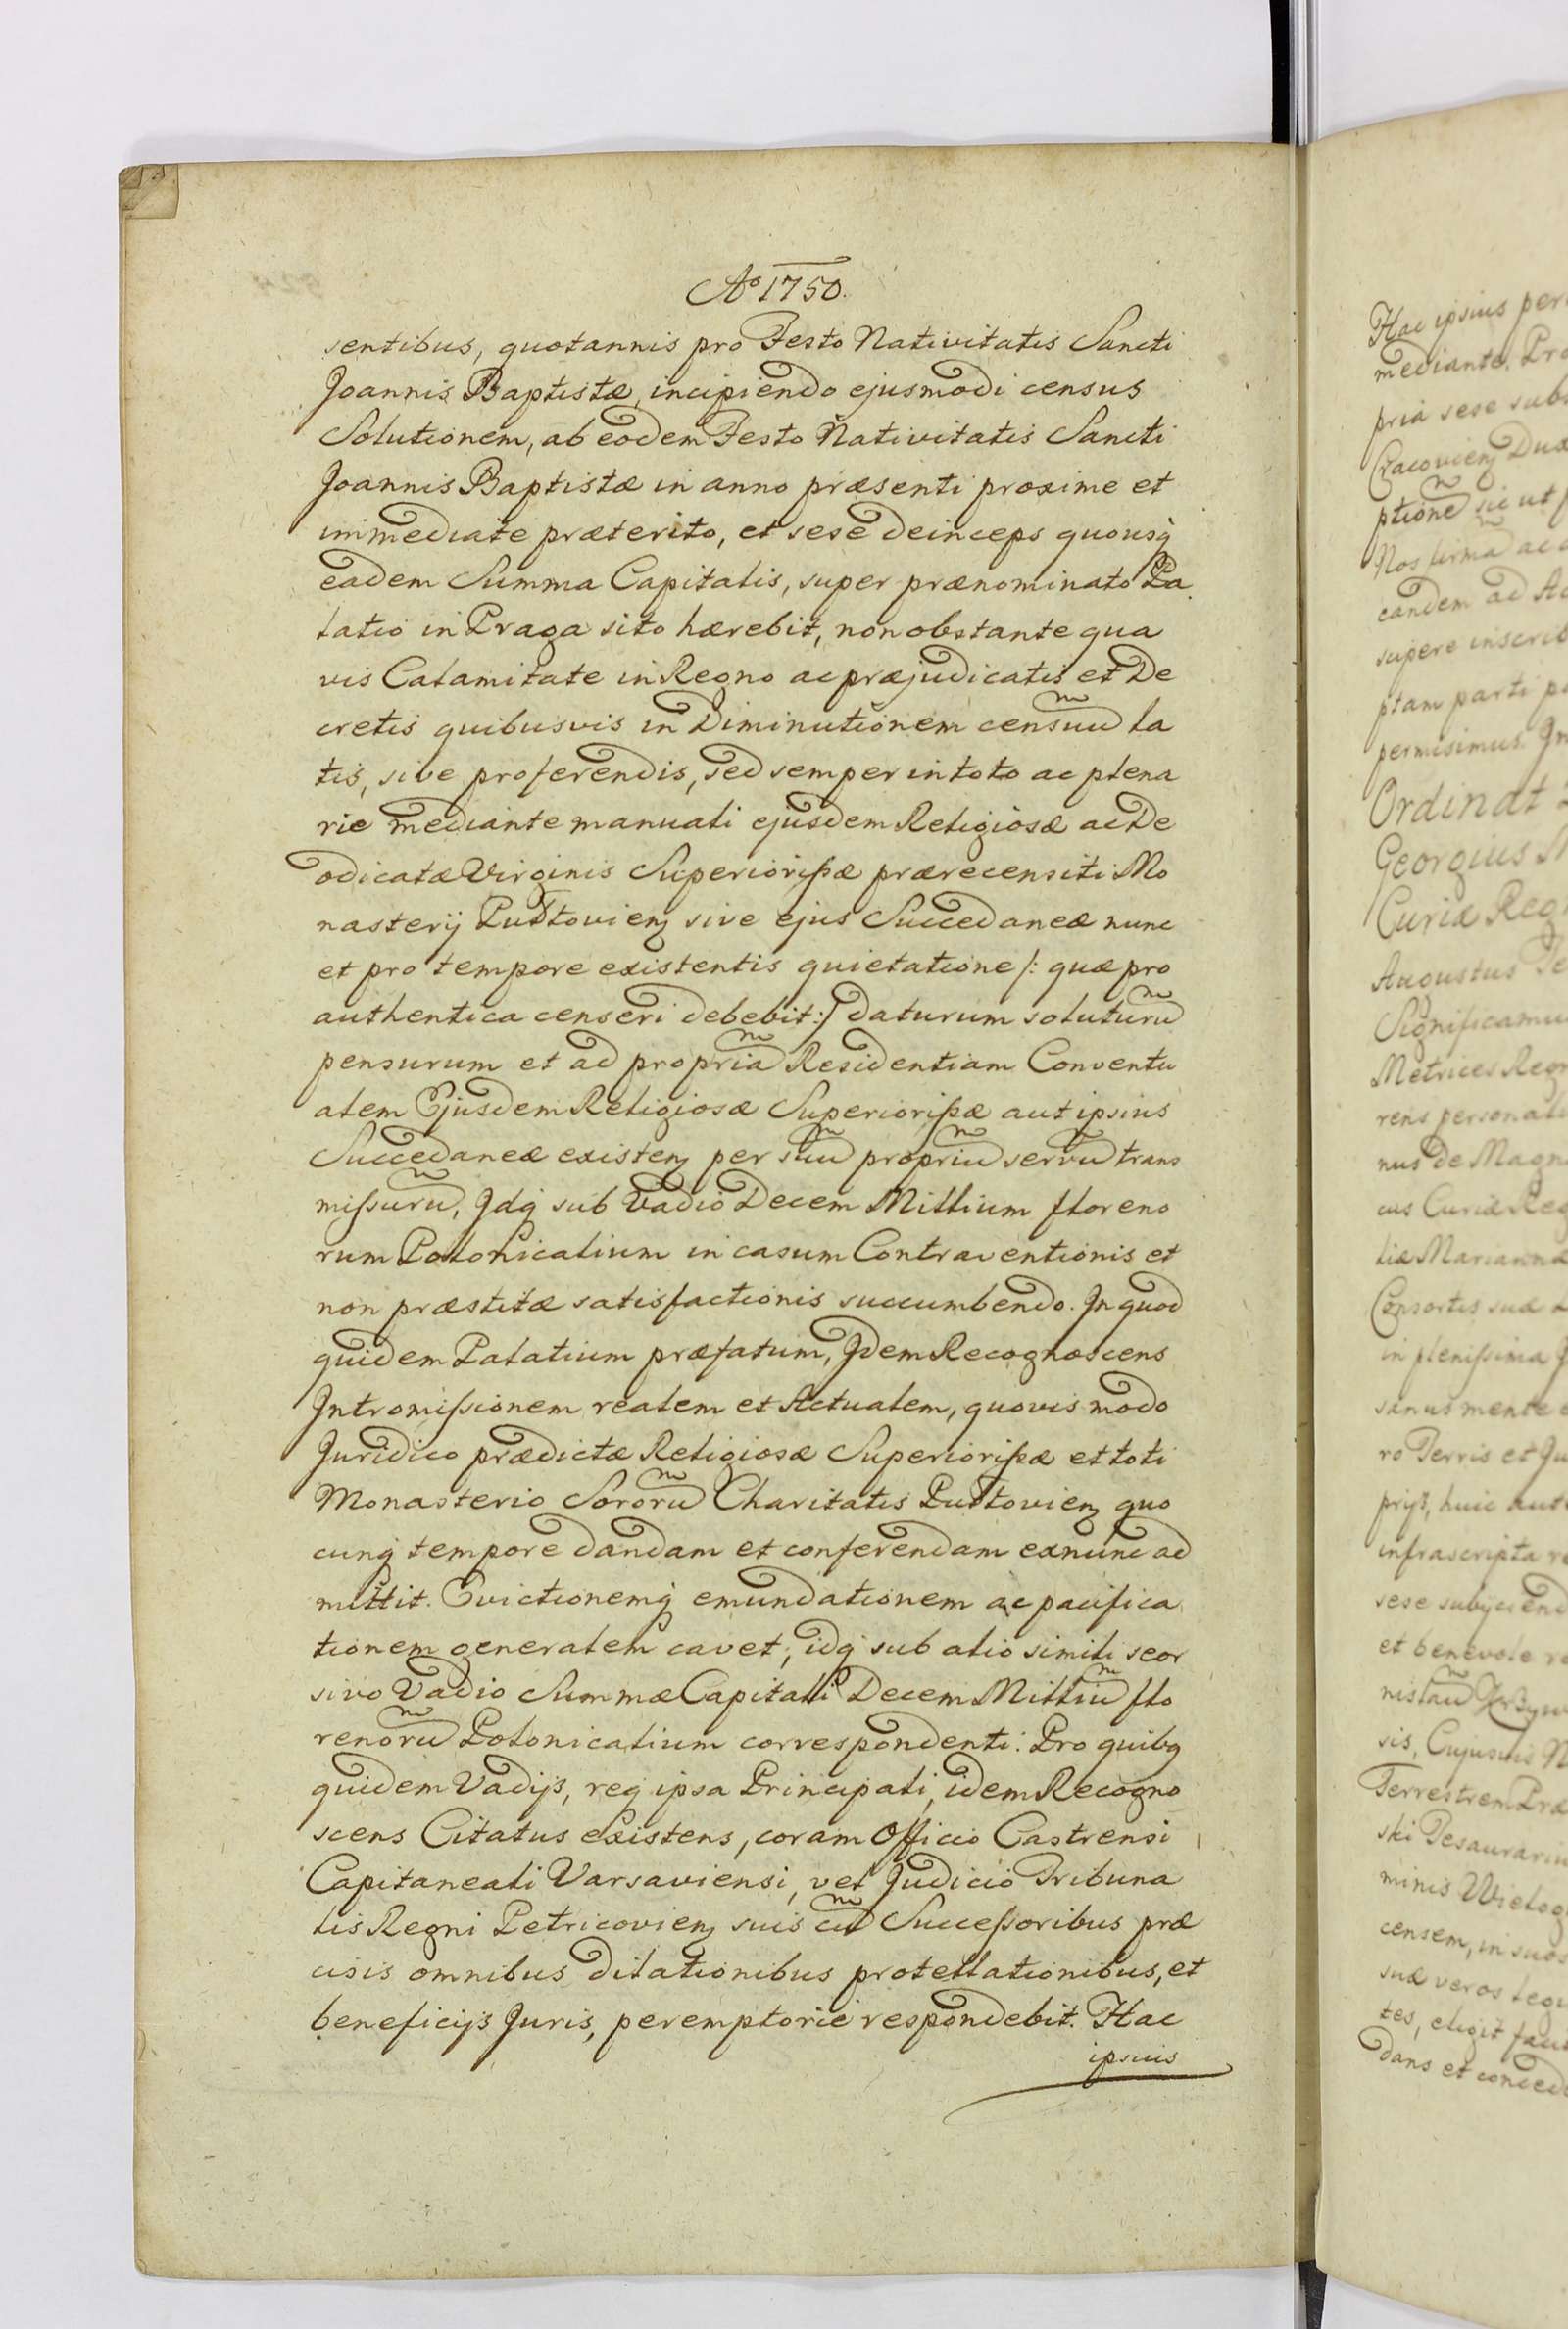 Aº 1750.
sentibus, quotannis pro Festo Nativitatis Sancti
Joannis Baptistæ, incipiendo ejusmodi census
Solutionem, ab eodem Festo Nativitatis Sancti
Joannis Baptistæ in anno præsenti proxime et
immediate præterito, et sese deinceps quousq
eadem Summa Capitalis, super prænominato Pa
latio in Praga sito hærebit, non obstante qua
vis Calamitate in Regno ac præjudicatis et De
cretis quibusvis in Diminutionem censuũ la
tis, sive proferendis, sed semper in toto ac plena
rie mediante manuali ejusdem Religiosæ ac De
odicatæ Virginis Superiorißæ prærecensiti Mo
nasterij Pultovien̄ sive ejus Succedaneæ nunc
et pro tempore existentis quietatione /: quæ pro
authentica censeri debebit :/ daturum soluturũ
pensurum et ad propriã Residentiam Conventu
alem Ejusdem Religiosæ Superiorißæ aut ipsius
Succedaneæ existen̄ per suũ propriũ servũ trans
mißurũ, Jdq sub Vadio Decem Millium floreno
rum Polonicalium in casum Contraventionis et
non præstitæ satisfactionis succumbendo. Jn quod
quidem Palatium præfatum, Jdem Recognoscens
Jntromißionem realem et Actualem, quovis modo
Juridico prædictæ Religiosæ Superiorißæ et toti
Monasterio Sororũ Charitatis Pultovien̄ quo
cunq tempore dandam et conferendam exnunc ad
mittit. Evictionemq emundationem ac pacifica
tionem generalem cavet, idq sub alio simili seor
sivo Vadio Summæ Capitali Decem Milliũ flo
renorũ Polonicalium correspondenti. Pro quibq
quidem Vadijs, req ipsa Principali, idem Recogno
scens Citatus existens, coram Officio Castrensi
Capitaneali Varsaviensi, vel Judicio Tribuna
lis Regni Petricovien̄ suis cũ Succeßoribus præ
cisis omnibus dilationibus protellationibus, et
beneficijs Juris, peremptorie respondebit. Hac
ipsius
Hac ipsius
mediante. Pro
pria sese
Cracovien̄ Dux
ptionẽ sic ut
Nos firmã ac
eandem ad
supere
ptam parti
permisimus.
Ordinat
Georgius
Curiæ
Augustus
Metrices
rens
nus de
cus Curiæ
liæ Mariannæ
Consortis suæ
in plenißima
sanus mente
ro Terris et
prijs, huic
infrascripta
sese
et benevole
sis, Cujusvis
Terrestrem
ski
minis
censem, in suos
suæ veros
tes, eligit
dans et